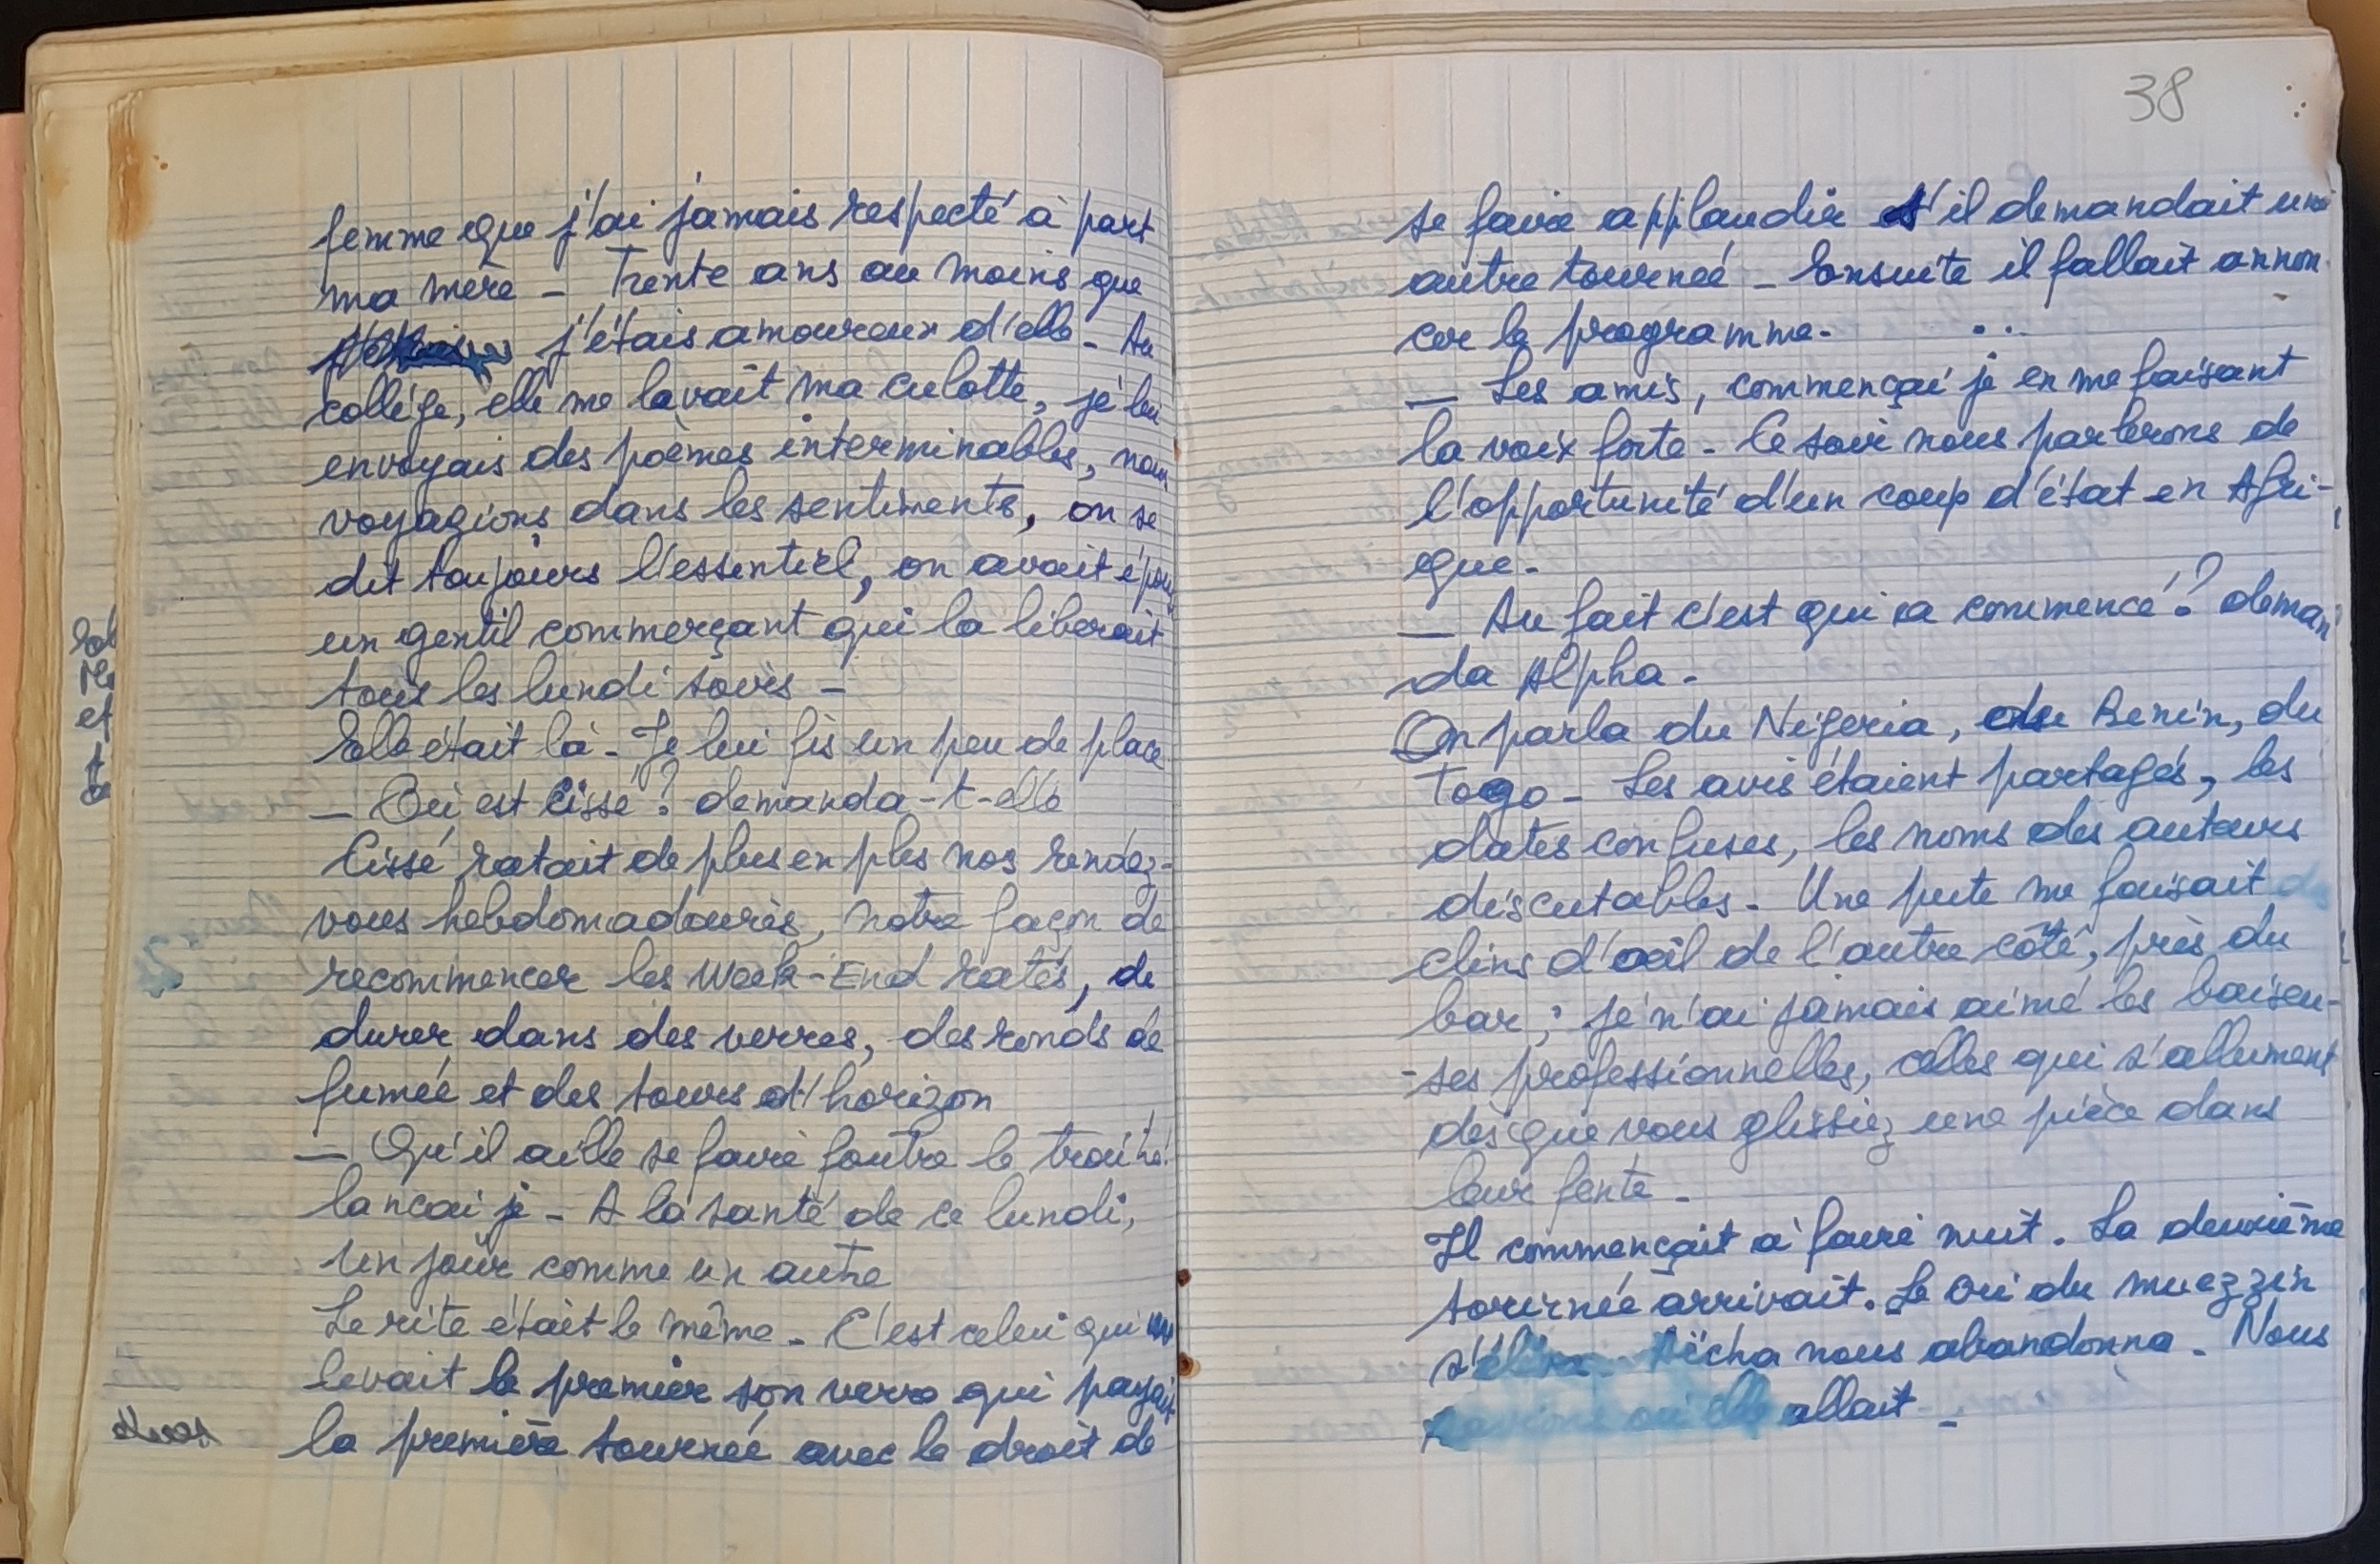 femme que j'ai jamais respecté à part
ma mère - Trente ans au moins que
j'étais amoureux d'elle - Au
collège, elle me lavait ma culotte, je lui
envoyais des poèmes interminables, nous
voyagions dans les sentiments, on se
dit toujours l'essentiel, on avait
un gentil commerçant qui la liberait
tous les lundi soirs -
Elle était là - Je lui fis un peu de place
- Où est Cissé ? demanda-t-elle
Cissé ratait de plus en plus nos rendez-
vous hebdomadaires, notre façon de
recommencer les Week-End ratés, de
durer dans des verres, des ronds de
fumée et des tours d'horizon
- Qu'il aille se faire foutre le traitre!
lancai je - A la santé de ce lundi,
un jour comme un autre
Le rite était le même - C'est celui qui
levait le premier son verre qui payait
la première tournée avec le droit de
38
se faire applaudir s'il demandait une
autre tournée - Ensuite il fallait annon
cer le programme -
- Les amis, commençai je en me faisant
la voix forte - Ce soir nous parlerons de
l'opportunité d'un coup d'état en Afri-
que -
- Au fait c'est qui a commencé ? deman
da Alpha -
On parla du Nigeria, du Benin, du
Togo - Les avis étaient partagés, les
dates confuses, les noms des auteurs
discutables - Une pute me faisait des
clins d'œil de l'autre côté, près du
bar ; je n'ai jamais aimé les baiseu-
-ses professionnelles, celles qui s'allument
dès que vous glissiez une pièce dans
leur fente -
Il commençait à faire nuit. La deuxième
tournée arrivait. Le cri du muezzin
s'éleva - Aïcha nous abandonna - Nous
savions où elle allait -